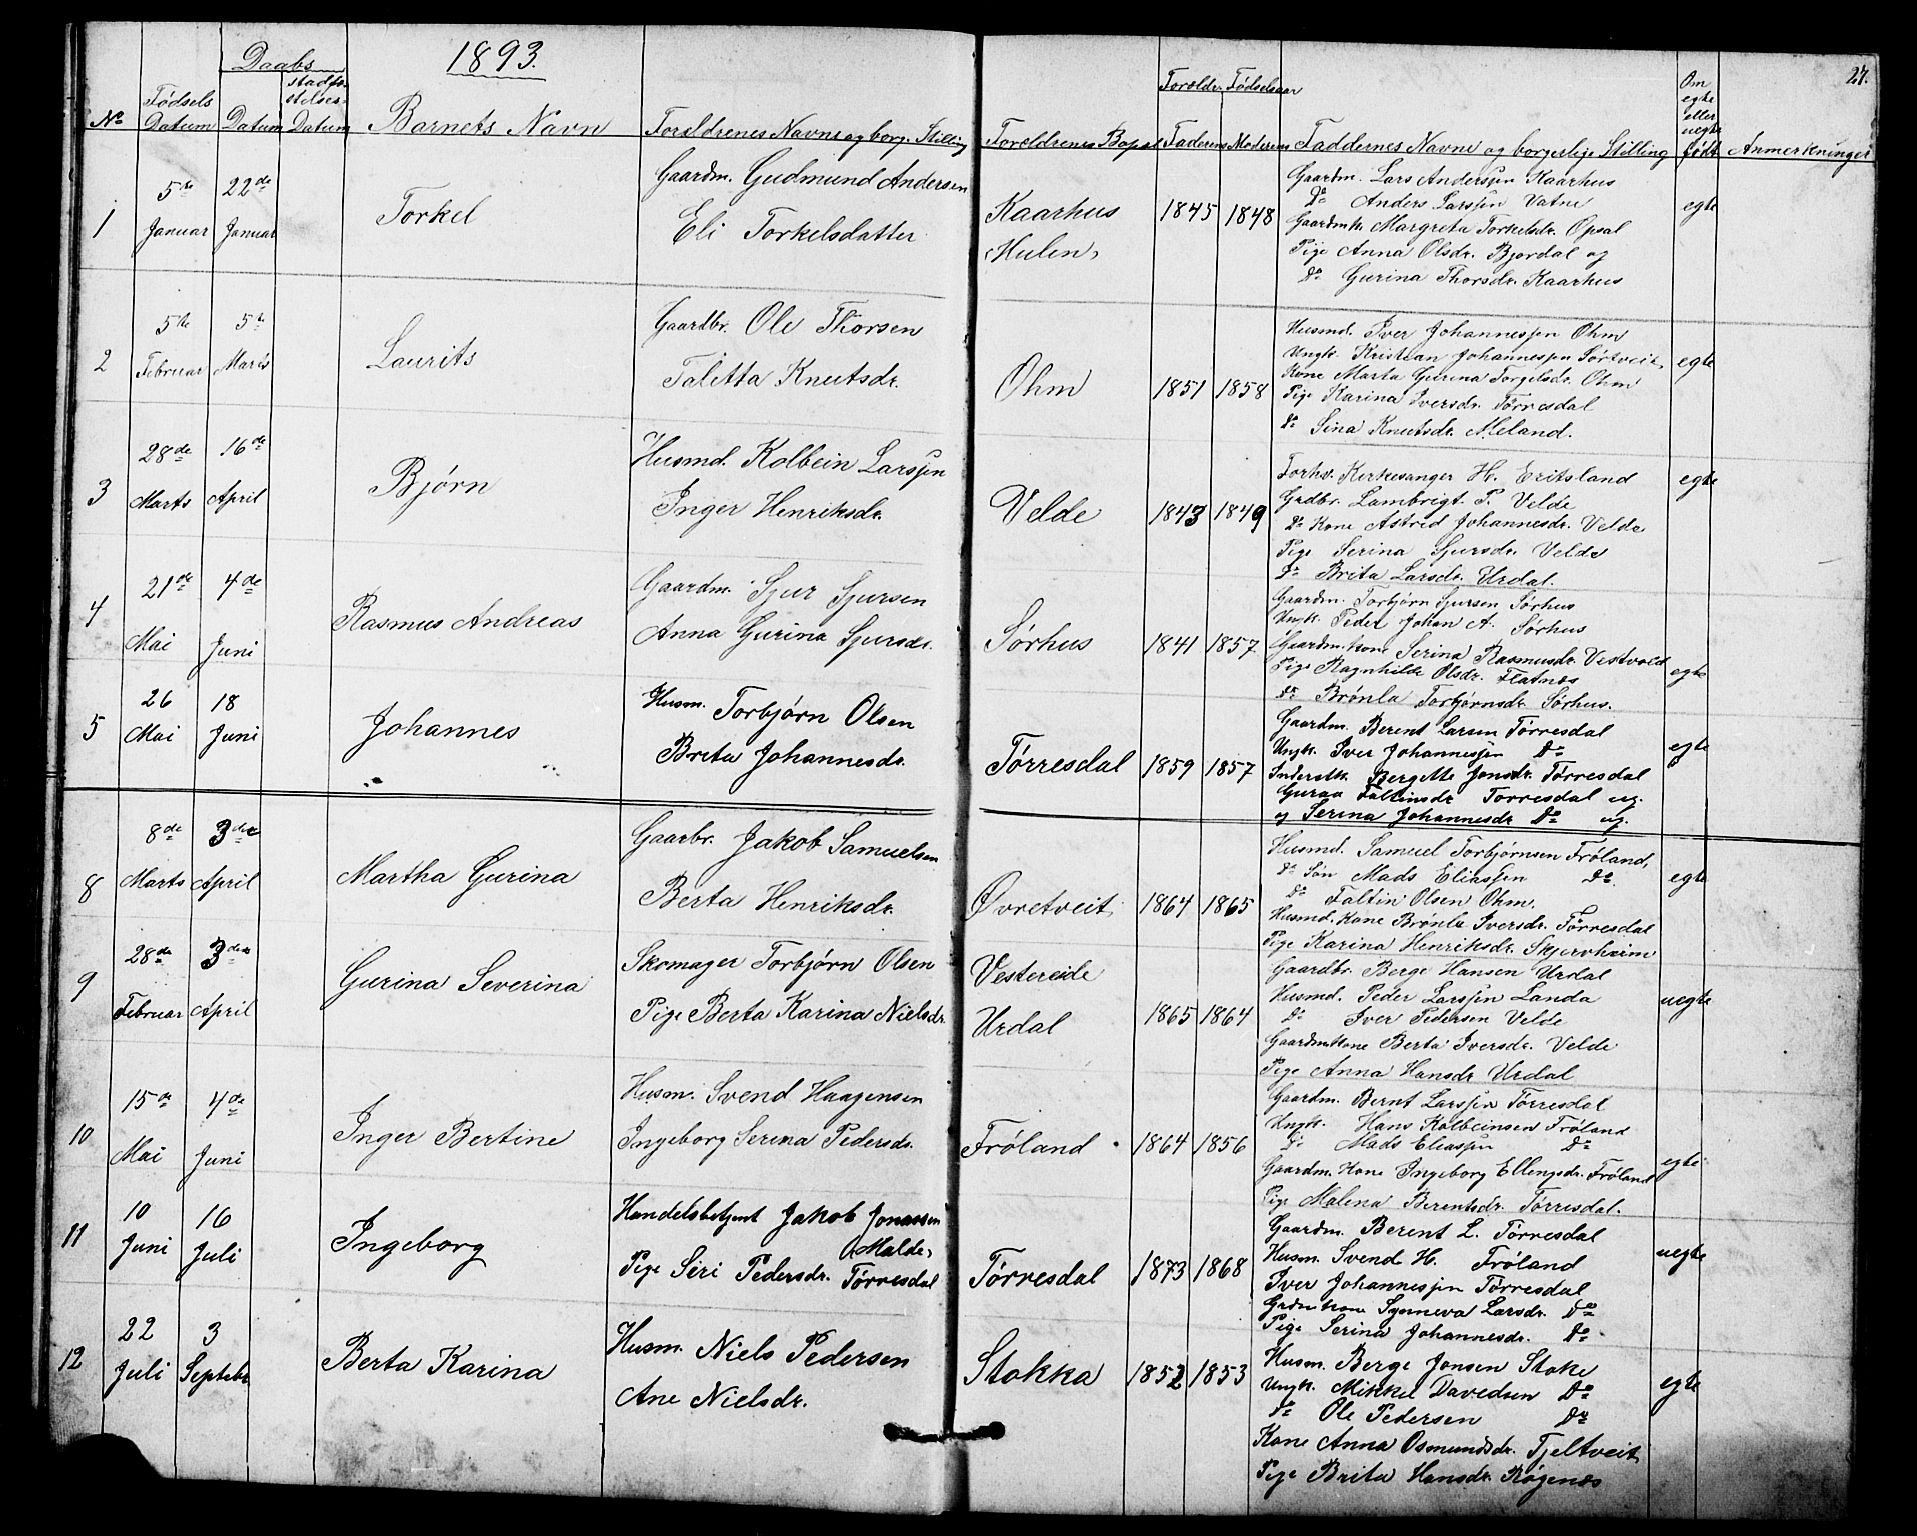 1893.
27.
Daabs
Forældr. Fødselsaar
Nº Fødsels Datum Datum Stadfæstelses-Datum Barnets Navn Forældrenes Navne og borg. Stilling Forældrenes Bopæl Faderens Moderens Faddernes Navne og borgerlige Stilling Om egte eller uegte født Anmerkninger
1 5te Januar 22de Januar Torkel
Gaardm. Gudmund Andersen
Eli Torkelsdatter
Kaarhus
(Hulen)
1845 1848
Gaardm. Lars Anderssen Kaarhus
Do Anders Larssen Vatne
Gaardmk. Margreta Torkelsdr. Opsal
Pige Anna Olsdr. Bjordal og
Do Gurina Thorsdr. Kaarhus
egte
2 5te Februar 5te Marts Laurits
Gaardbr. Ole Thorsen
Taletta Knutsdr.
Ohm 1851 1858
Husmd. Iver Johannessen Ohm
Ungk. Kristian Johannessen Sørtveit
Kone Marta Gurina Torgelsdr. Ohm
Pige Karina Iversdr. Tørresdal
Do Sina Knutsdr. Meland.
egte
3 28de Marts 16de April Bjørn
Husmd. Kolbein Larssen
Inger Henriksdr.
Velde 1843 1849
Forhv. Kirkesanger H. Eritsland
Grdbr. Lambrigt P. Velde
Do Kone Astrid Johannesdr. Velde
Pige Serina Sjursdr. Velde
Do Brita Larsdr. Urdal.
egte
4 21de Mai 4de Juni Rasmus Andreas
Gaardm. Sjur Sjursen
Anna Gurina Sjursdr.
Sørhus 1841 1857
Gaardm. Torbjørn Sjursen Sørhus
Ungk. Peder Johan A. Sørhus
Gaardm.kone Serina Rasmusdr. Vestvold
Pige Ragnhilde Olsdr. Flatnæs
Do Brønla Torbjørnsdr. Sørhus.
egte
5 26 Mai 18 Juni Johannes
Husm. Torbjørn Olsen
Brita Johannesdr.
Tørresdal 1859 1857
Gaardm. Berent Larsen Tørresdal
Ungk. Iver Johannessen Do
Inderstk. Bergitte Jonsdr. Tørresdal
Guraa Faltinsdr Torresdal ug.
og Serina Johannesdr Do ug.
egte
8 8de Marts 3die April Martha Gurina
Gaarbr. Jakob Samuelsen
Berta Henriksdr.
Øvretveit 1864 1865
Husmd. Samuel Torbjørnsen Frøland,
Do Søn Mads Eliassen Do.
Do Faltin Olsen Ohm.
Husmd. Kone Brønla Iversdr. Tørresdal
Pige Karina Henriksdr. Skjervheim
egte
9 28de Februar 3die April Gurina Severina
Skomager Torbjørn Olsen
Pige Berta Karina Nielsdr.
Vestereide
Urdal
1865 1864
Gaardbr. Berge Hansen Urdal
Husmd. Peder Larssen Landa
Do Iver Pedersen Velde
Gaardmkone Berta Iversdr. Velde
Pige Anna Hansdr Urdal
uegte
10 15de Mai 4de Juni Inger Bertine
Husm. Svend Haagensen
Ingeborg Serina Pedersdr.
Frøland 1864 1856
Gaardm. Bernt Larssen Tørresdal
Ungk. Hans Kolbeinsen Frøland
Do Mads Eliassen Do
Gaardm. Kone Ingeborg Ellingsdr. Frøland
Pige Malena Berentsdr. Tørresdal.
egte
11 10 Juni 16 Juli Ingeborg
Handelsbetjent Jakob Jonassen
(Malde)
Pige Siri Pedersdr. Tørresdal
Tørresdal 1873 1868
Gaardm. Berent L. Tørresdal
Husm. Svend H. Frøland
Iver Johannessen Tørresdal
Grdmkone Synneva Larsdr. Do
Pige Serina Johannesdr. Do
uegte
12 22 Juli 3 Septebr Berta Karina
Husm. Niels Pedersen
Ane Nielsdr.
Stokka 1852 1853
Husm. Berge Jonsen Stoke
Ungk. Mikkel Davidsen Do
Do Ole Pedersen Do
Kone Anna Osmundsdr. Tjeltveit
Pige Brita Hansdr. Røgenæs
egte